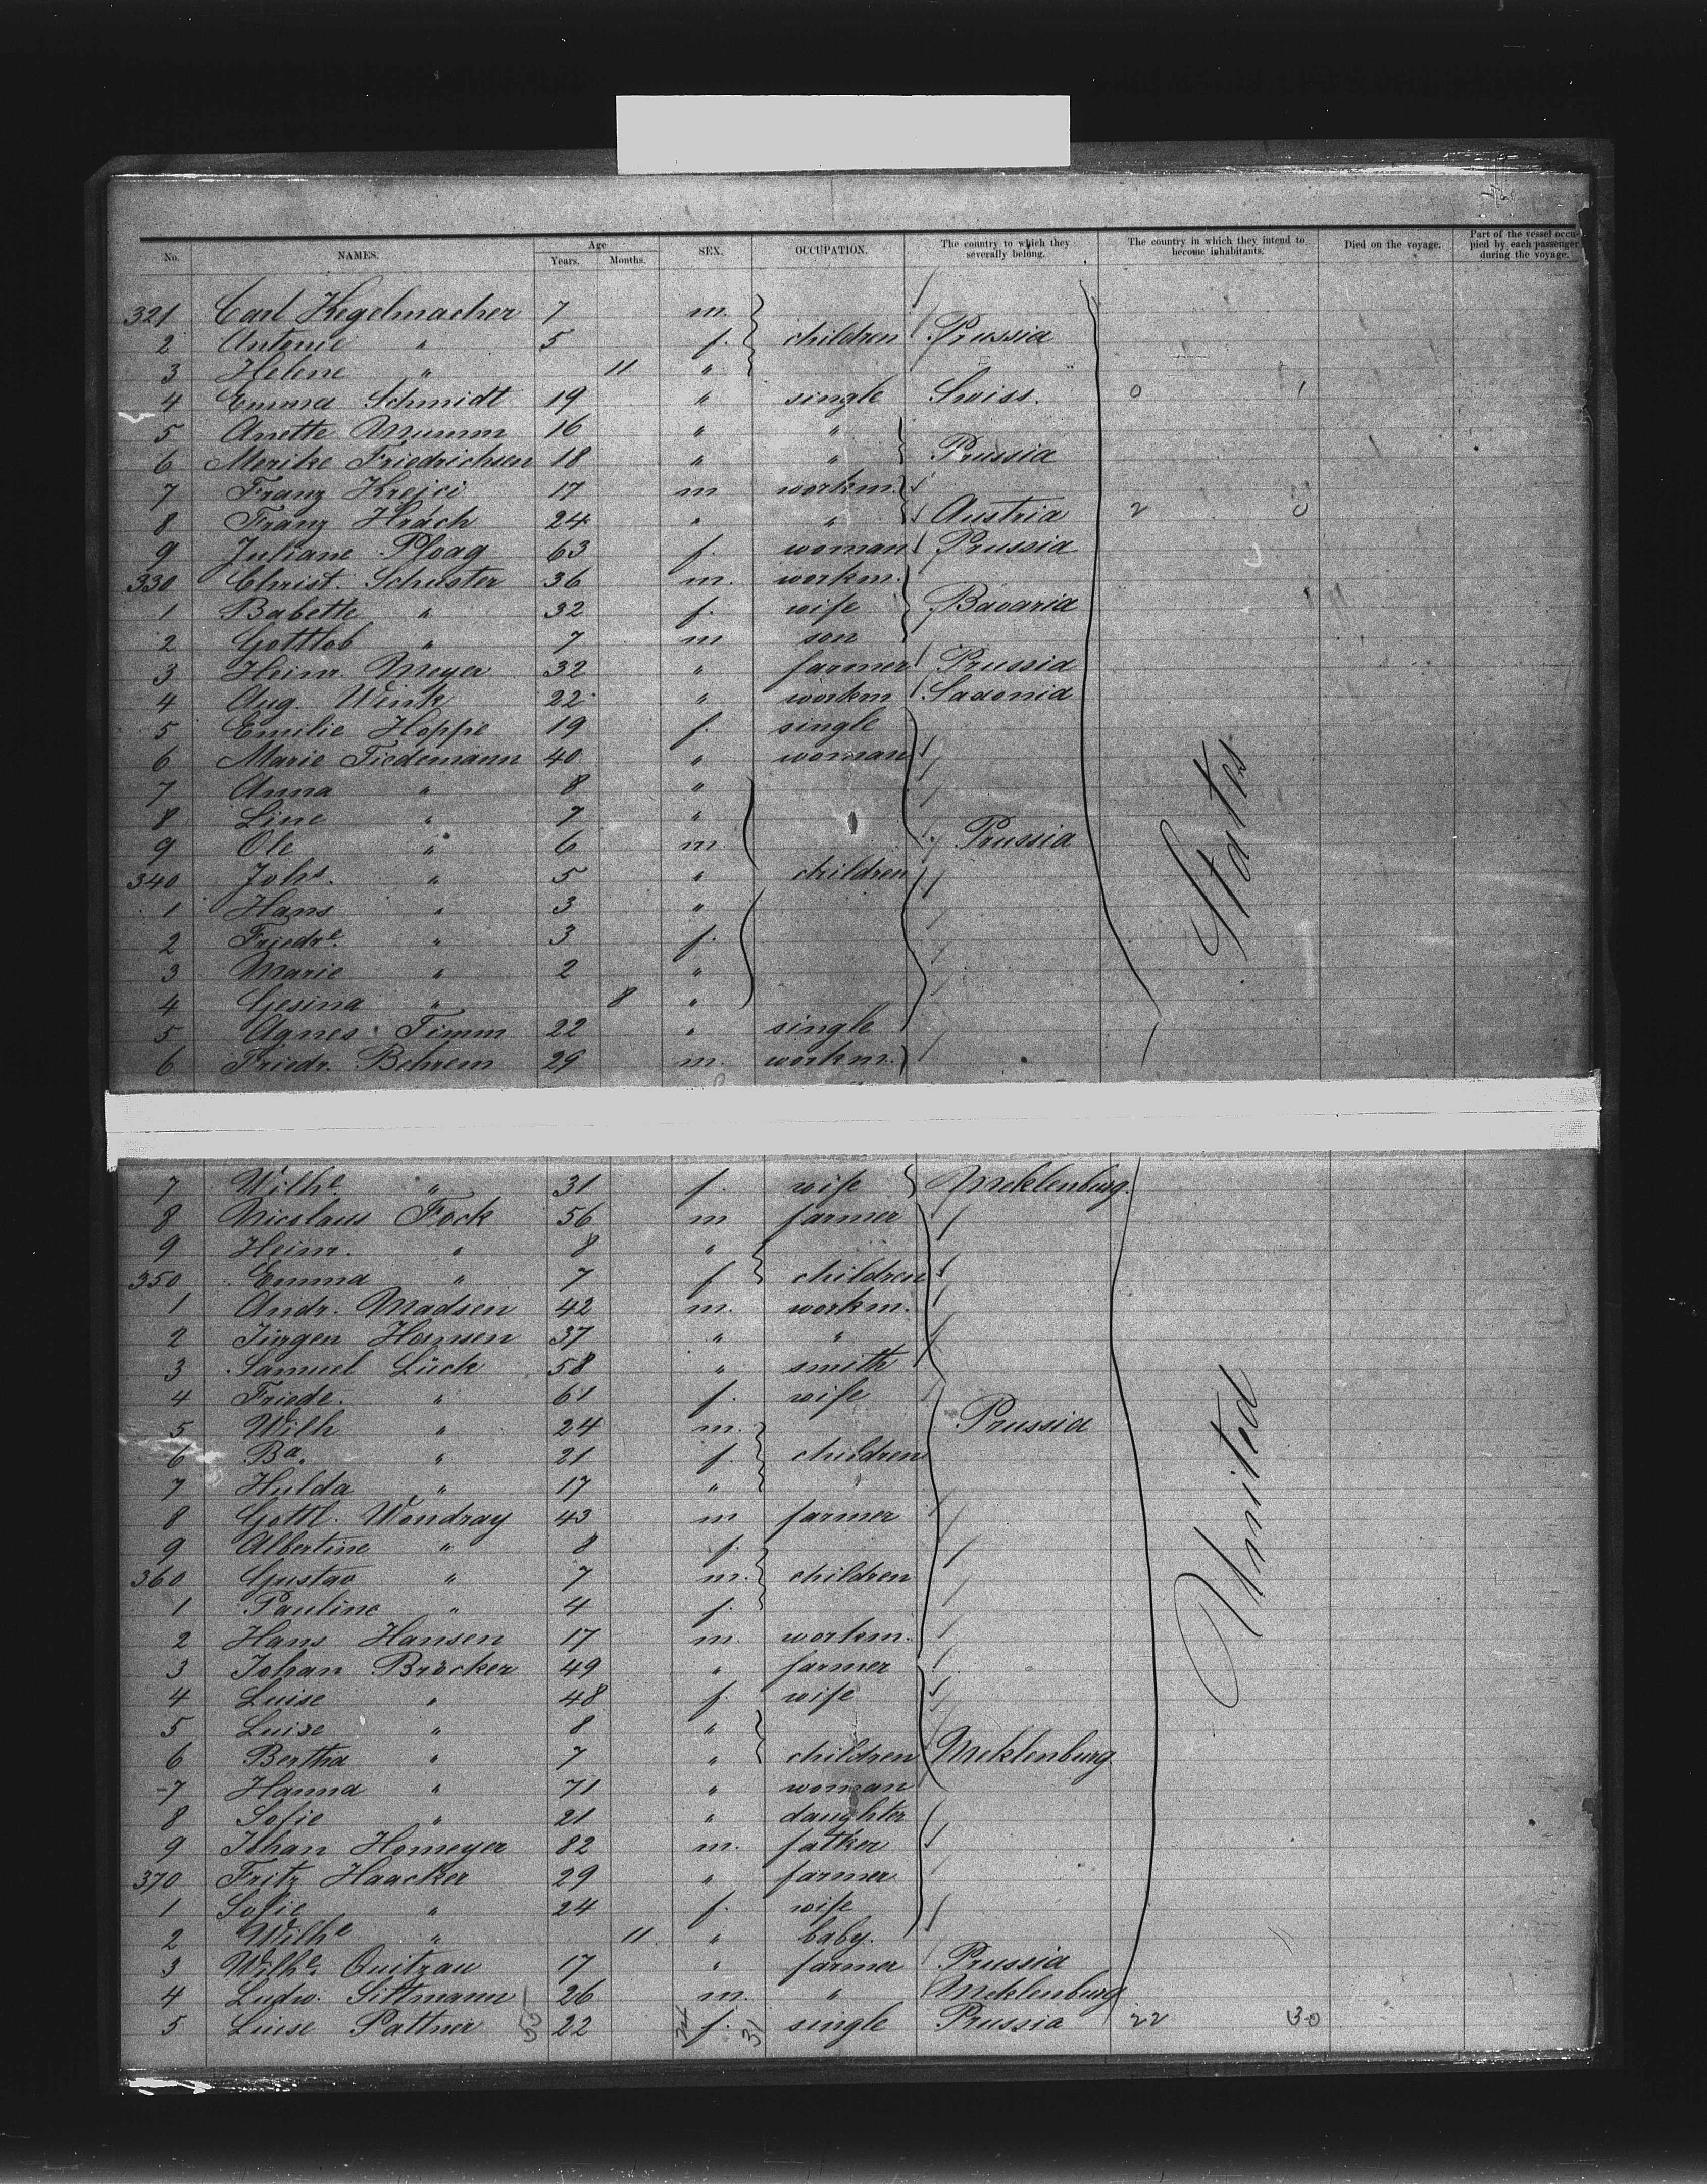 No. NAMES. Age Years. Months. SEX. OCCUPATION. The country to which they severally belong. The country in which they intend to become inhabitants. Died on the voyage. Part of the vessel occupied by each passenger during the voyage.
321 Carl Kegelmacher 7 m.
2 Antonie " 5 f. children Prussia
3 Helene " 11 "
4 Emma Schmidt 19 " single Swiss. 0 1
5 Anette Mumm 16 " "
6 Merike Friedrichsen 18 " " Prussia
7 Franz Krejci 17 m workm.
8 Franz Hrach 24 " " Austria 2 0
9 Juliane Ploag 63 f. woman Prussia
330 Christ. Schuster 36 m. workm.
1 Babette " 32 f. wife Bavaria
2 Gottlob " 7 m son
3 Heinr. Meyer 32 " farmer Prussia
4 Aug. Wink 22 " workm Saxonia
5 Emilie Hoppe 19 f. single
6 Marie Tiedemann 40 " woman
7 Anna " 8 "
8 Line " 7 "
9 Ole " 6 m Prussia
340 Johs. " 5 " children
1 Hans " 3 "
2 Friedre. " 3 f.
3 Marie " 2 "
4 Gesina " 8 "
5 Agnes Timm 22 " single
6 Friedr. Behrem 29 m. workm.
States
7 Wilhe. " 31 f. wife Meklenburg.
8 Nicolaus Fock 56 m farmer
9 Heinr. " 8 "
350 Emma " 7 f children
1 Andr. Madsen 42 m. workm.
2 Jürgen Hansen 37 " "
3 Samuel Lück 58 " smith
4 Friede. " 61 f. wife
5 Wilh " 24 m. Prussia
6 Ba. " 21 f. children
7 Hulda " 17 "
8 Gottl. Wondray 43 m farmer
9 Albertine " 8 f.
360 Gustav " 7 m. children
1 Pauline " 4 f.
2 Hans Hansen 17 m. workm.
3 Johan Bröcker 49 " farmer
4 Luise " 48 f. wife
5 Luise " 8 "
6 Bertha " 7 " children Meklenburg
7 Hanna " 71 " woman
8 Sofie " 21 " daughter
9 Johan Homeyer 82 m. father
370 Fritz Haacker 29 " farmer
1 Sofie " 24 f. wife
2 Wilhe " 11 " baby.
3 Wilhe. Quitzau 17 " farmer Prussia
4 Ludw. Sittmann 26 m. " Meklenburg
5 Luise Pattner 22 f. single Prussia 22 30
United